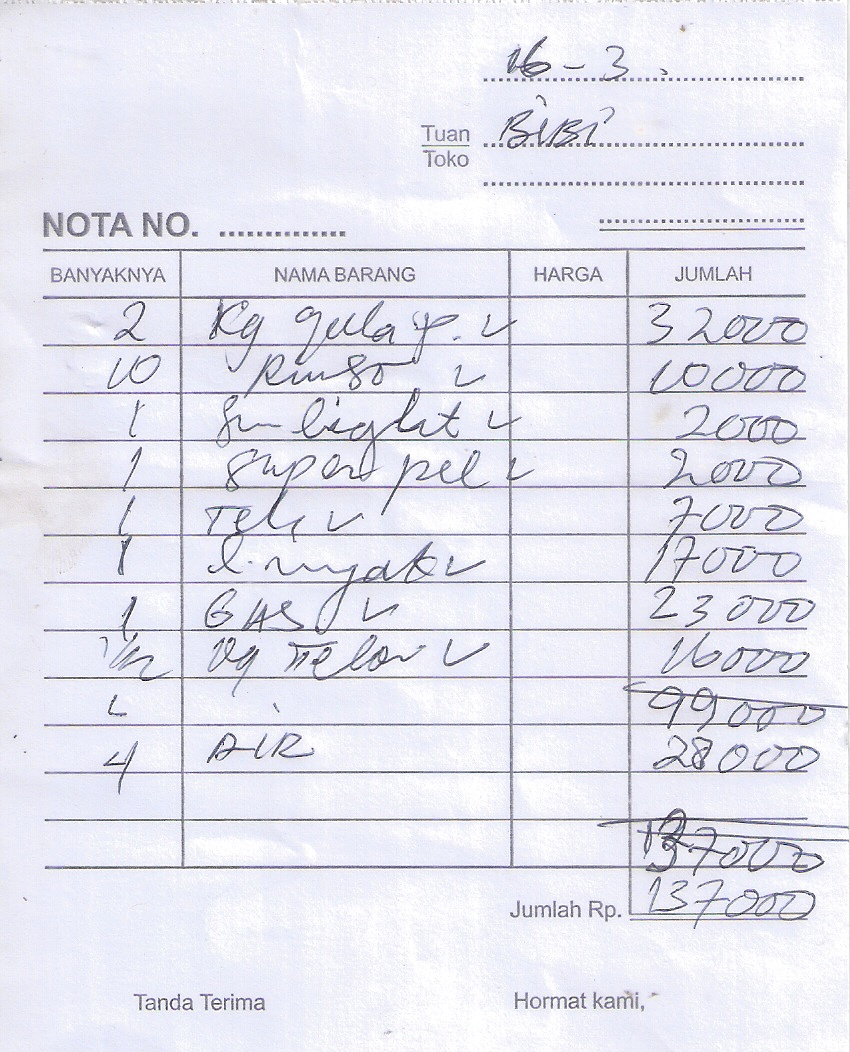 16-3.
Tuan BiBi
Toko
NOTA NO. ..............
BANYAKNYA NAMA BARANG HARGA JUMLAH
2 Kg gula p. ✓ 32000
10 Rinso ✓ 10000
1 Sunlight ✓ 2000
1 Super pel ✓ 2000
1 Teh ✓ 7000
1 ✓ 17000
1 GAS ✓ 23000
1/2 Kg Telor ✓ 16000
99000
4 AIR 28000
137000
Jumlah Rp. 137000
Tanda Terima Hormat kami,